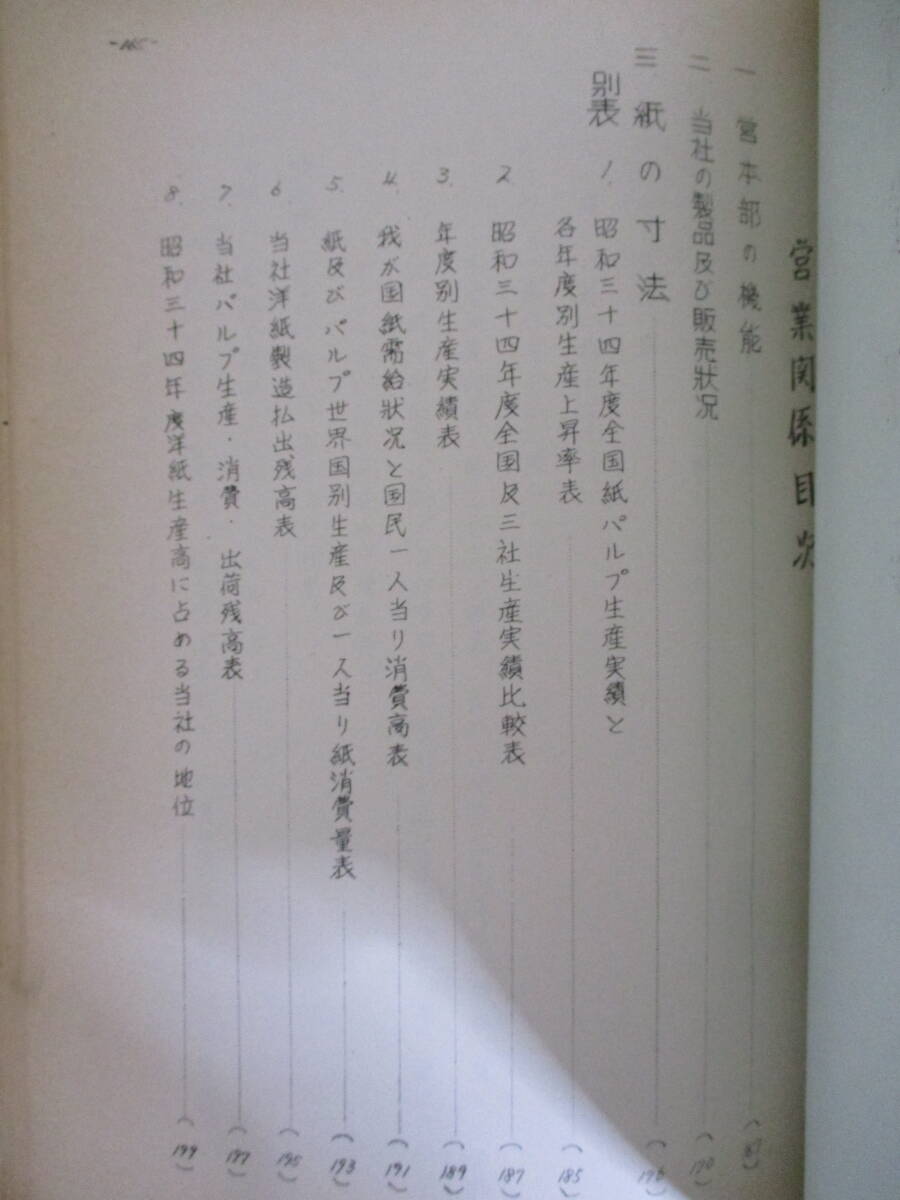 営業関係目次
一 営本部の機能 (167)
二 当社の製品及び販売状况 (170)
三 紙の寸法 (176)
別表
1. 昭和三十四年度全国紙パルプ生産実績と
各年度別生産上昇率表 (185)
2 昭和三十四年度全国及三社生産実績比較表 (187)
3. 年度別生産実績表 (189)
4. 我が国紙需給状况と国民一人当り消費高表 (191)
5. 紙及びパルプ世界国別生産及び一人当り紙消費量表 (193)
6 当社洋紙製造払出残高表 (195)
7. 当社パルプ生産・消費・出荷残高表 (197)
8. 昭和三十四年度洋紙生産高に占める当社の地位 (199)
-165-